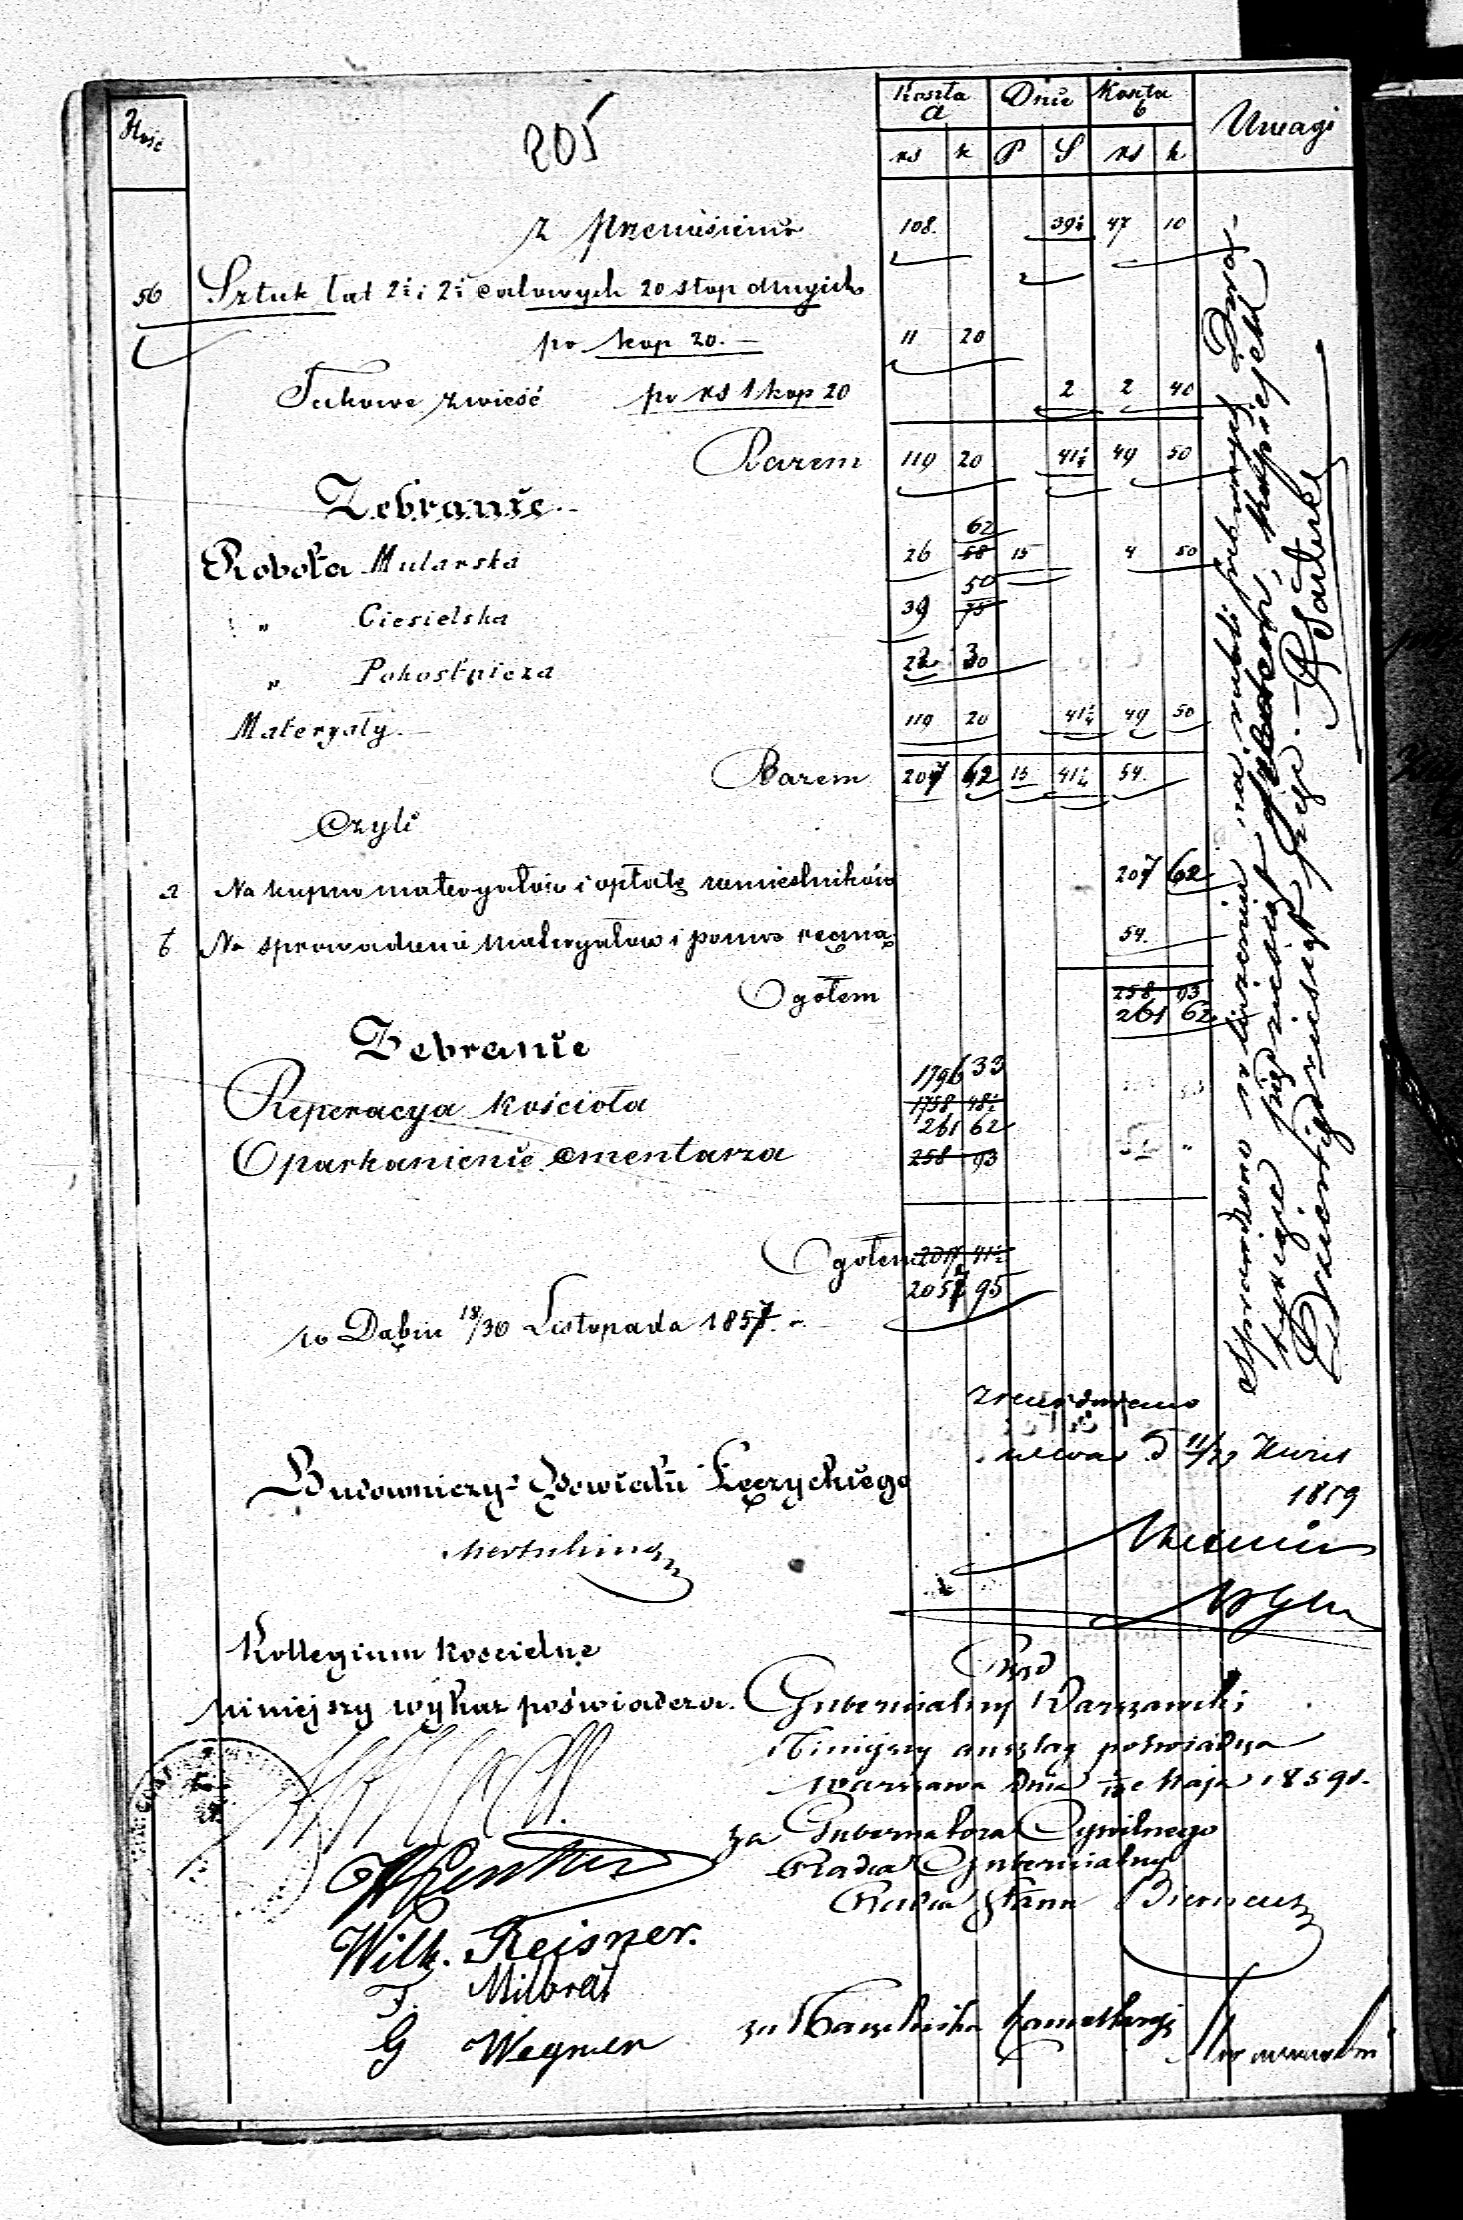 205
Ilość
Koszta a
Dnie
Koszta b
Uwagi
rs k P S rs k
z przeniesienia 108. 39½ 47 10
56 Sztuk łat 2½ i 2½ calowych 20 stop długich
po kop 20. — 11 20
Takowe zwieść po rs 1 kop 20 2 2 40
Razem 119 20 41½ 49 50
Zebranie.
Robota Mularska 26 58 62 15 4 50
„ Ciesielska 39 75 50
„ Pokostnicza 22 30
Materyały. 119 20 41½ 49 50
Razem 207 62 15 41½ 54.
Czyli
a Na kupno materyałów i opłatę rzemieslników 207 62
b Na sprowadzenie materyałów i pomoc ręczną. 54.
Ogołem 258 93
261 62
Zebranie
1796 33
Reperacya kościoła 1758 48½
261 62
Oparkanienie cmentarza 258 93
Ogołem 2017 41½
2057 95
w Dąbiu 18/30 Listopada 1857.
Sprawdzono
Dziewięćdziesiąt pięć. —
zrewidowano
1859
Budowniczy Powiatu Łęczyckiego
Kollegium kościelne
niniejszy wykaz poświadcza.
Rząd
Gubernialny Warszawski
Niniejszy anszlag poświadcza
Warszawa dnia Maja 1859 r.
za Gubernatora Cywilnego
Radca Gubernialny
Radca Stanu
Wilh. Reisner.
F. Milbrat
G Wegner
za Naczelnika Kancellaryi